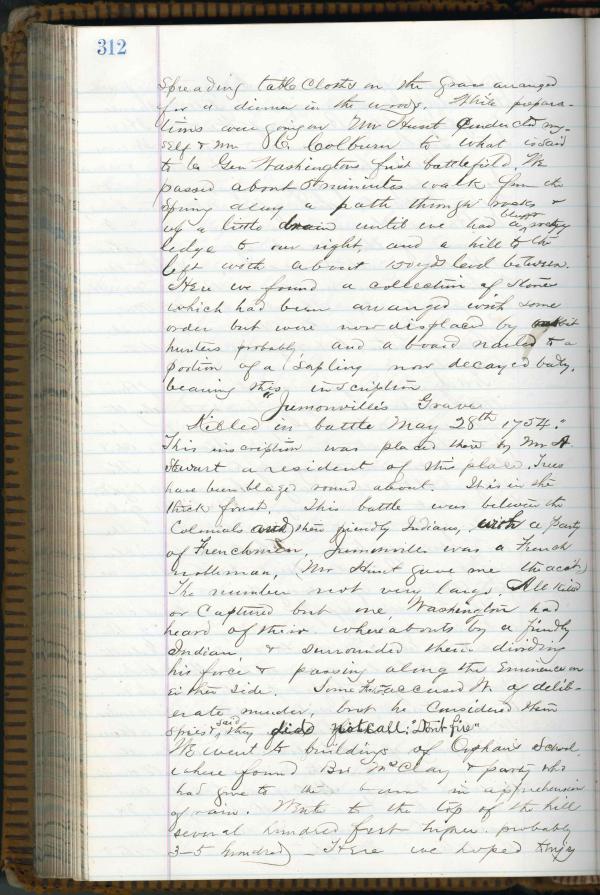 312
spreading table cloths on the grass arranged
for a dinner in the woods. While prepara-
tions were going on Mr Hunt conducted my-
self & Mr C. Colburn to what is said
to be Gen Washingtons first battlefield. We
passed about 8 minutes walk from the
Spring along a path through rocks &
up a little drain until we had a bluff rocky
ledge to our right, and a hill to the
left with about 150 yds level between.
Here we found a collection of stones
which had been arranged with some
order but were now displaced by rabbit
hunters probably and a board nailed to a
portion of a sapling now decayed baly,
bearing this inscription
"Jumonville's Grave
Killed in battle May 28th 1754."
This inscription was placed there by Mr A
Stewart a resident of this place. Trees
have been blazed round about. It is in the
thick forest. This battle was between the
Colonials and their friendly Indians, with a party
of Frenchmen, Jumonville was a French
nobleman, (Mr Hunt gave me the acct.)
The number not very large. All killed
or captured but one Washington had
heard of their whereabouts by a friendly
Indian & surrounded them dividing
his force & passing along the eminence on
either side. Some accused W. of delib-
erate murder, but he considered them
spies, said they did not call: "Don't fire"
We went to buildings of Orphans School
where found Bro McClay & party who
had gone to the barn in apprehension
of rain. Went to the top of the hill
several hundred feet higher. probably
3-5 hundred - Here we hoped to enjoy